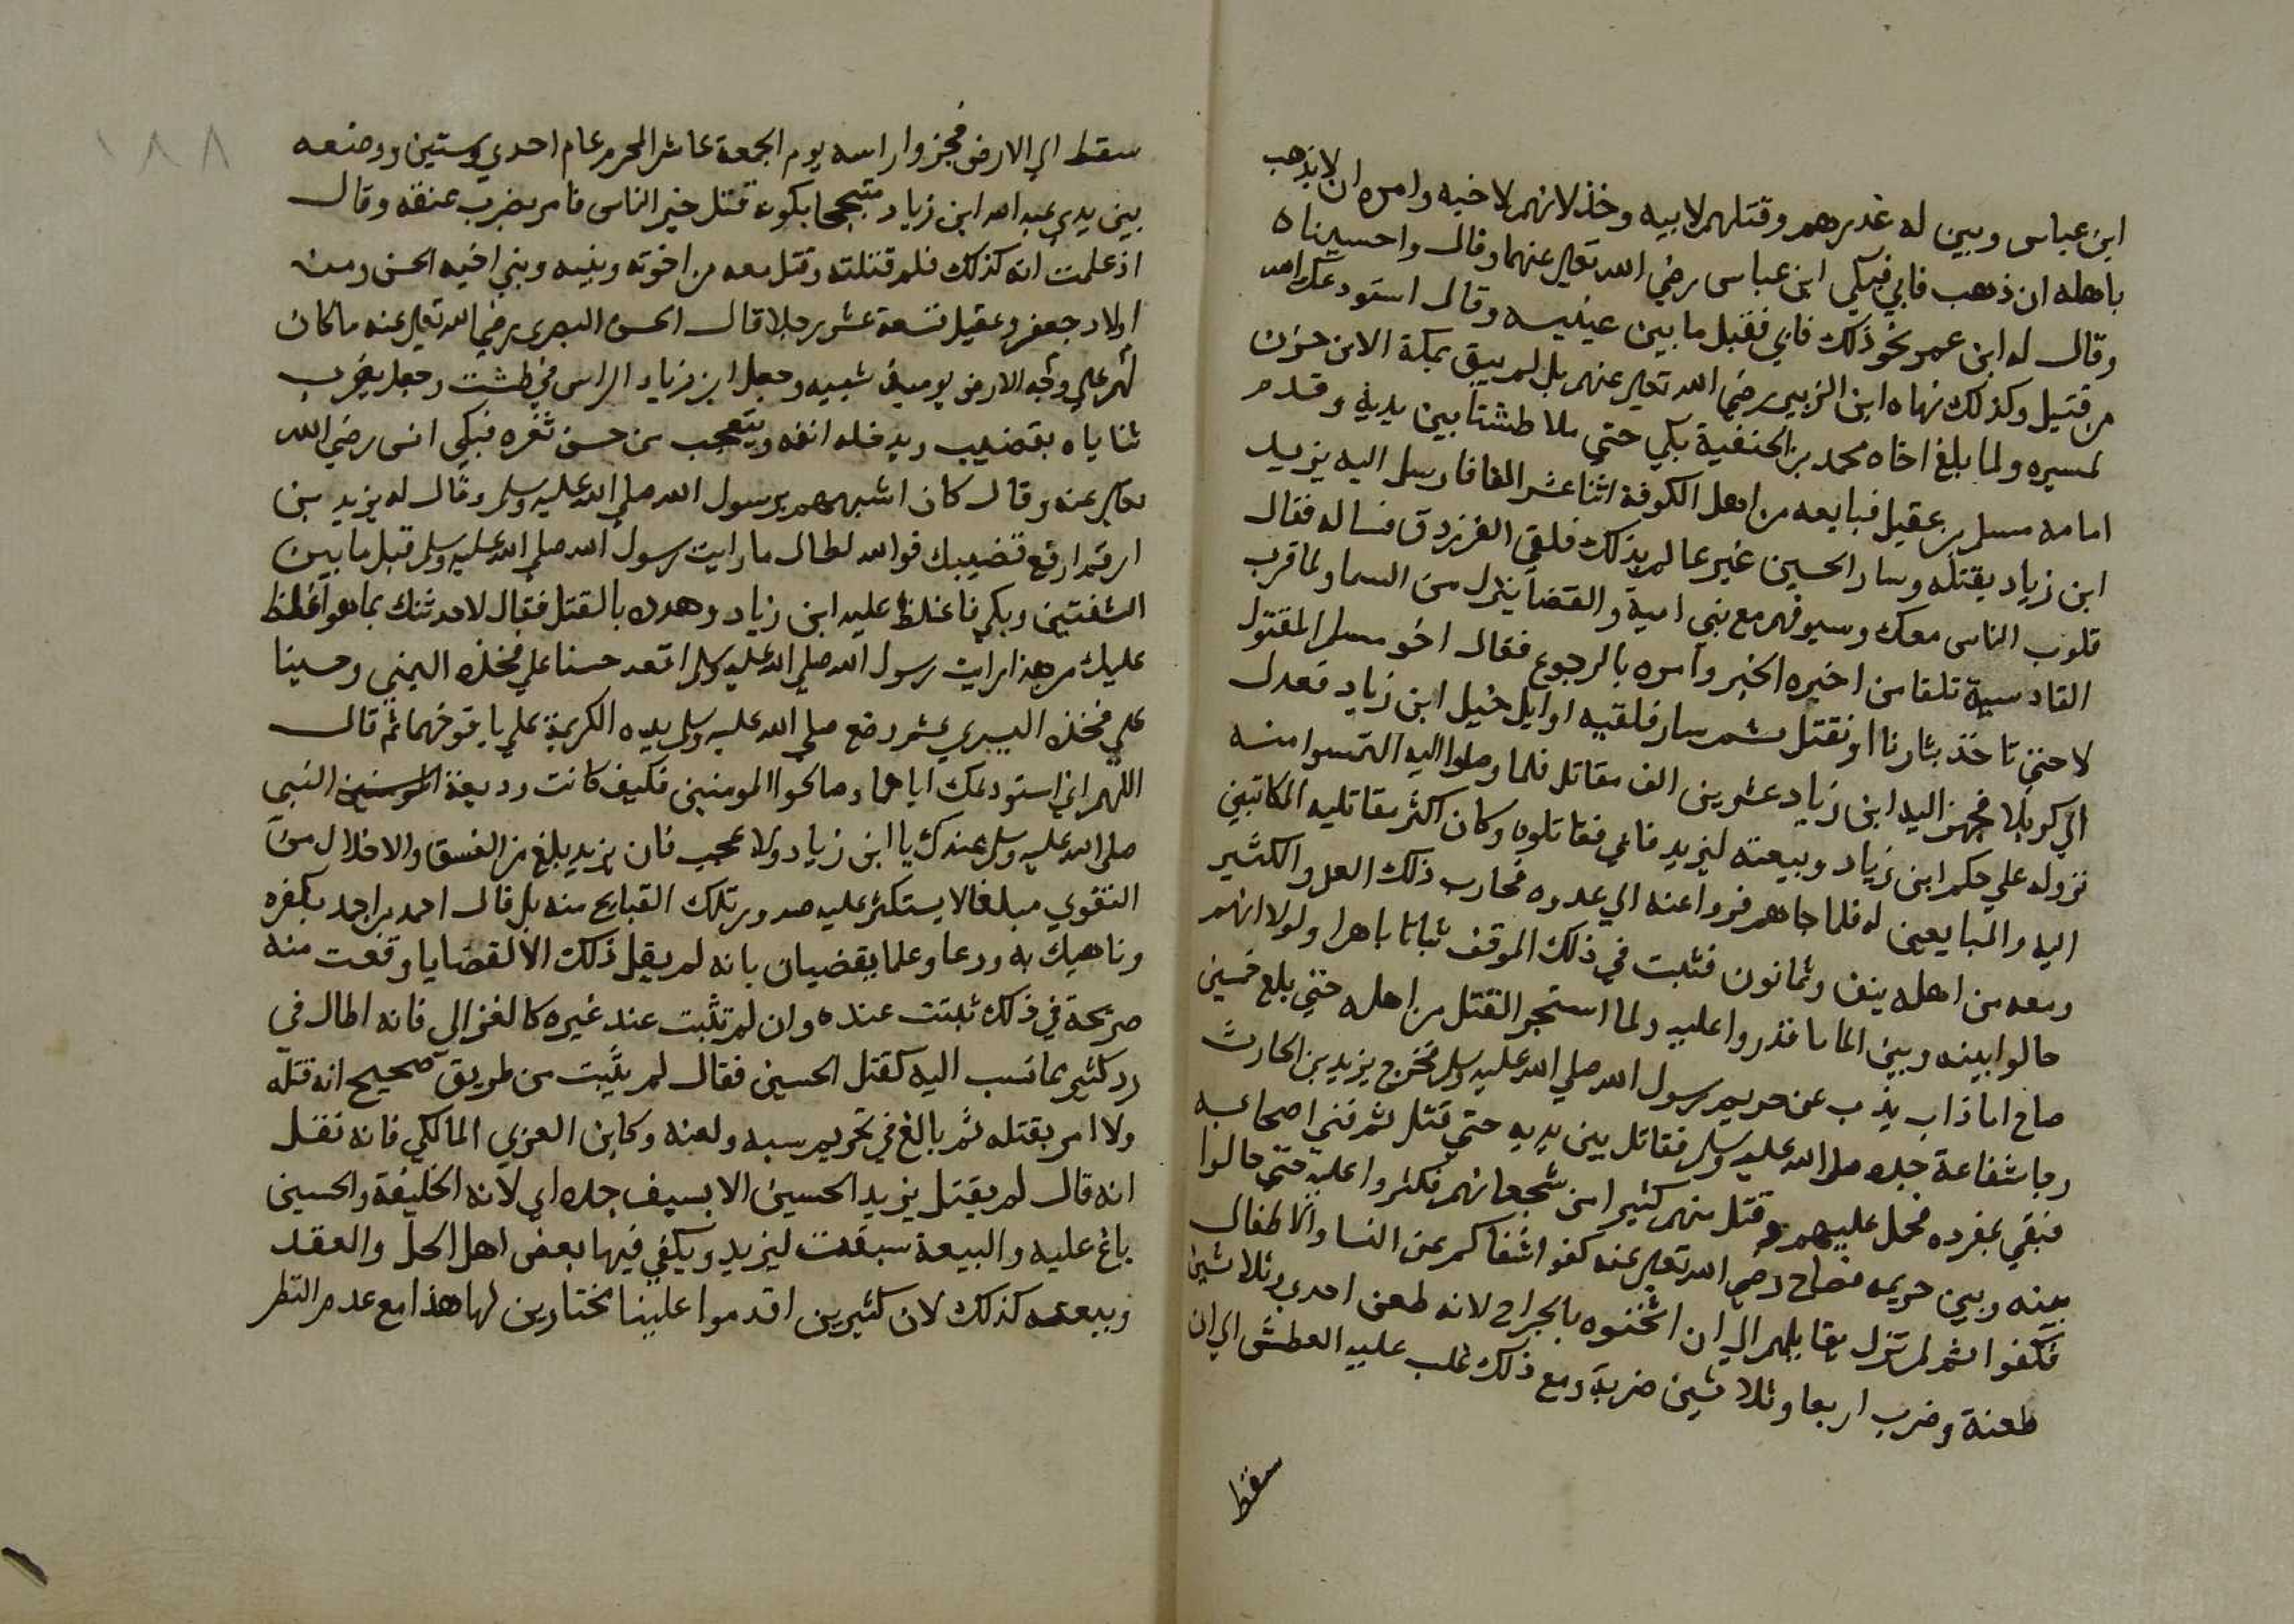 ابن عباس وبين له غدرهم وقتلهم لابيه وخذلانهم لاخيه وامره ان لا يذهب
باهله ان ذهب فابي فبكي ابن عباس رضي الله تعالى عنهما وقال واحسيناه
وقال له ابن عمر نحو ذلك فابي فقبل ما بين عينيه وقال استودعك الله
من قتيل وكذلك نهاه ابن الزبير رضي الله تعالى عنهم بل لم يبق بمكة الا من حزن
لمسيره ولما بلغ اخاه محمد بن الحنفية بكي حتي ملا طشتا بين يديه وقدم
امامه مسلم بن عقيل فبايعه من اهل الكوفة اثنا عشر الفا فارسل اليه يزيد
ابن زياد بقتله وسار الحسين غير عالم بذلك فلقي الفرزدق فساله فقال
قلوب الناس معك وسيوفهم مع بني امية والقضا ينزل من السما ولما قرب
القادسية تلقا من اخبره الخبر وامره بالرجوع فقال اخو مسلم المقتول
لا حتي تاخذ بثارنا او نقتل ثم سار فلقيه اوايل خيل ابن زياد فعدل
الي كربلا فجهز اليه ابن زياد عشرين الف مقاتل فلما وصلوا اليه التمسوا منه
نزوله علي حكم ابن زياد وبيعته ليزيد فابي فقاتلوه وكان اكثر مقاتليه المكاتبين
اليه والمبايعين له فلما جاهم فروا عنه الي عدوه فحارب ذلك العدو الكثير
ومعه من اهله نيف وثمانون فثبت في ذلك الموقف ثباتا باهرا ولولا انهم
حالوا بينه وبين الما ما قدروا عليه ولما استحر القتل من اهله حتي بلغ خمسين
صاح اما ذاب يذب عن حريم رسول الله صلي الله عليه وسلم فخرج يزيد بن الحارث
رجا شفاعة جده صلى الله عليه وسلم فقاتل بين يديه حتي قتل ثم فني اصحابه
فبقي بمفرده فحمل عليهم وقتل منهم كثيرا من شجعانهم فكثروا عليه حتي حالوا
بينه وبين حريمه فصاح رضي الله تعالى عنه كفوا سفهاكم عن النسا والاطفال
فكفوا ثم لم يزل يقاتلهم الي ان اثخنوه بالجراح لانه طعن احدي وثلاثين
طعنة وضرب اربعا وثلاثين ضربة ومع ذلك غلب عليه العطش الي ان
سقط
١٨٨
سقط الي الارض فجزوا راسه يوم الجمعة عاشر المحرم عام احدي وستين ووضعه
بين يدي عبد الله ابن زياد متبجحا بكونه قتل خير الناس فامر بضرب عنقه وقال
اذ علمت انه كذلك فلم قتلته وقتل معه من اخوته وبنيه وبني اخيه الحسن ومن
اولاد جعفر وعقيل تسعة عشر رجلا قال الحسن البصري رضي الله تعالى عنه ما كان
لهم علي وجه الارض يوميذ شبيه وجعل ابن زياد الراس في طشت وجعل يضرب
ثناياه بقضيب ويدخله انفه ويتعجب من حسن ثغره فبكي انس رضي الله
تعالى عنه وقال كان اشبههم برسول الله صلي الله عليه وسلم وقال له يزيد بن
ارقم ارفع قضيبك فوالله لطال ما رايت رسول الله صلي الله عليه وسلم قبل ما بين
الشفتين وبكي فاغلظ عليه ابن زياد وهدده بالقتل فقال لاحدثنك بما هو اغلظ
عليك من هذا رايت رسول الله صلي الله عليه وسلم اقعد حسنا علي فخذه اليمني وحسينا
علي فخذه اليسري ثم وضع صلي الله عليه وسلم يده الكريمة علي يافوخهما ثم قال
اللهم اني استودعك اياهما وصالحوا المومنين فكيف كانت وديعة المومنين النبي
صلى الله عليه وسلم عندك يا ابن زياد ولا عجب فان يزيد بلغ من الفسق والاخلال من
التقوي مبلغا لا يستكثر عليه صدور تلك القبايح منه بل قال احمد بن احمد بكفره
وناهيك به ورعا وعلما يقضيان بانه لم يقل ذلك الا لقضايا وقعت منه
صريحة في ذلك ثبتت عنده وان لم تثبت عند غيره كالغزالي فانه اطال في
رد كثير مما نسب اليه كقتل الحسين فقال لم يثبت من طريق صحيح انه قتله
ولا امر بقتله ثم بالغ في تحريم سبه ولعنه وكابن العربي المالكي فانه نقل
انه قال لم يقتل يزيد الحسين الا بسيف جده اي لانه الخليفة والحسين
باغ عليه والبيعة سبقت ليزيد ويكفي فيها بعض اهل الحل والعقد
وبيعته كذلك لان كثيرين اقدموا علينا مختارين لها هذا مع عدم النظر